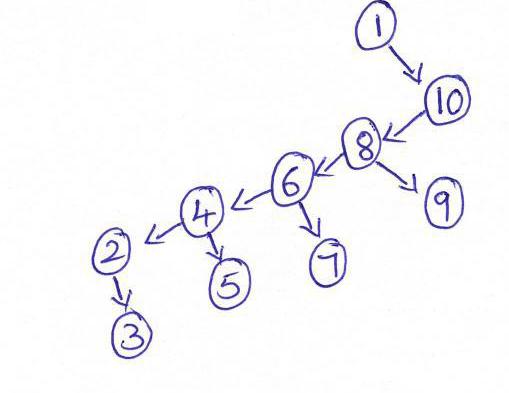 1
10
8
6
9
4
2
7
5
3